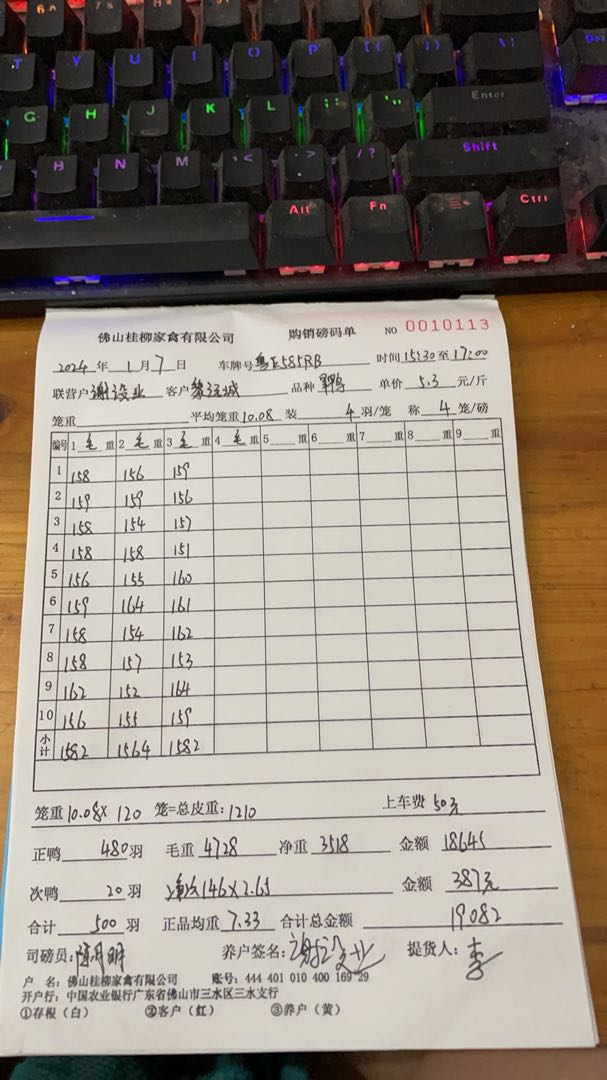 T Y U I O P [ { ] } \ |
G H J K L ; : ' " Enter
B N M , < . > / ? Shift
Alt Fn Ctrl
佛山桂柳家禽有限公司 购销磅码单 NO 0010113
2024 年 1 月 7 日 车牌号 粤E585RB 时间 15:30 至 17:00
联营户 谢设业 客户 黎远城 品种 单价 5.3 元/斤
笼重 平均笼重 10.08 装 4 羽/笼 称 4 笼/磅
编号 1 毛 重 2 毛 重 3 毛 重 4 毛 重 5 重 6 重 7 重 8 重 9 重
1 158 156 159
2 159 159 156
3 158 154 157
4 158 158 151
5 156 155 160
6 159 164 161
7 158 154 162
8 158 157 153
9 162 152 164
10 156 155 159
小计 1582 1564 1582
笼重 10.08 × 120 笼=总皮重: 1210 上车费 50元
正鸭 480 羽 毛重 4728 净重 3518 金额 18645
次鸭 20 羽 净重 146×2.65 金额 387元
合计 500 羽 正品均重 7.33 合计总金额 19082
司磅员: 养户签名: 谢设业 提货人: 李
户 名: 佛山桂柳家禽有限公司 账号: 444 401 010 400 169 29
开户行: 中国农业银行广东省佛山市三水区三水支行
①存根（白） ②客户（红） ③养户（黄）